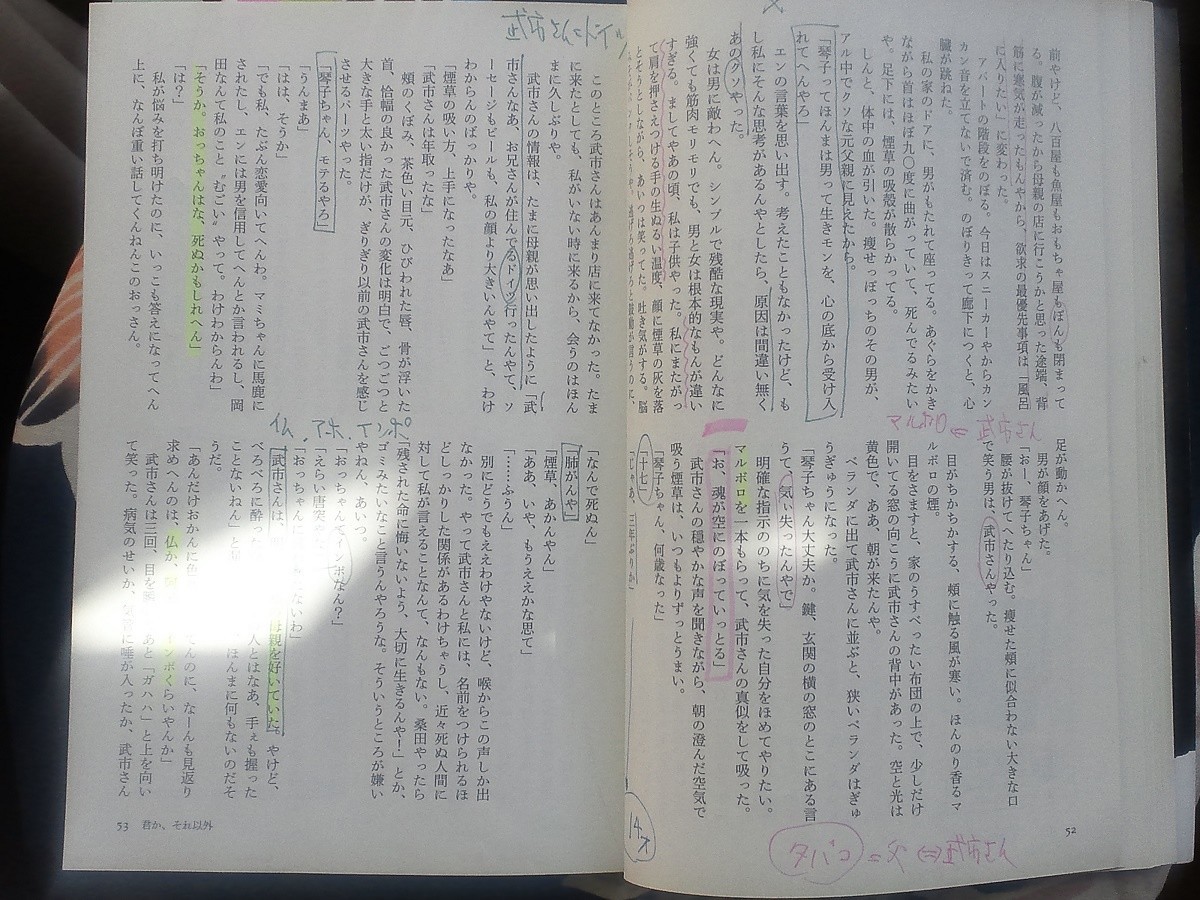 前やけど、八百屋も魚屋もおもちゃ屋もぽんも閉まって
る。腹が減ったから母親の店に行こうかと思った途端、背
筋に寒気が走ったもんやから、欲求の最優先事項は「風呂
に入りたい」に変わった。
アパートの階段をのぼる。今日はスニーカーやからカン
カン音を立てないで済む。のぼりきって廊下につくと、心
臓が跳ねた。
私の家のドアに、男がもたれて座ってる。あぐらをかき
ながら首はほぼ九〇度に曲がっていて、死んでるみたい
や。足下には、煙草の吸殻が散らかってる。
しんと、体中の血が引いた。痩せっぽっちのその男が、
アル中でクソな元父親に見えたから。
「琴子ってほんまは男って生きモンを、心の底から受け入
れてへんやろ」
エンの言葉を思い出す。考えたこともなかったけど、も
し私にそんな思考があるんやとしたら、原因は間違い無く
あのクソや。
女は男に敵わへん。シンプルで残酷な現実や。どんなに
強くても筋肉モリモリでも、男と女は根本的なもんが違い
すぎる。ましてやあの頃、私は子供やった。私にまたがっ
て肩を押さえつける手の生ぬるい温度、顔に煙草の灰を落
とそうとしながら、あいつは笑ってた。吐き気がする。脳
足が動かへん。
男が顔をあげた。
「お、琴子ちゃん」
腰が抜けてへたり込む。痩せた頬に似合わない大きな口
で笑う男は、武市さんやった。
目がちかちかする、頬に触る風が寒い。ほんのり香るマ
ルボロの煙。
目をさますと、家のうすべったい布団の上で、少しだけ
開いてる窓の向こうに武市さんの背中があった。空と光は
黄色で、ああ、朝が来たんや。
ベランダに出て武市さんに並ぶと、狭いベランダはぎゅ
うぎゅうになった。
「琴子ちゃん大丈夫か。鍵、玄関の横の窓のとこにある言
うて、気ぃ失ったんやで」
明確な指示ののちに気を失った自分をほめてやりたい。
マルボロを一本もらって、武市さんの真似をして吸った。
「お、魂が空にのぼっていっとる」
武市さんの穏やかな声を聞きながら、朝の澄んだ空気で
吸う煙草は、いつもよりずっとうまい。
「琴子ちゃん、何歳なった」
「十七」
マルボロ = 武市さん
タバコ = 父 ⇔ 武市さん
14才
52
武市さんとドイツ
このところ武市さんはあんまり店に来てなかった。たま
に来たとしても、私がいない時に来るから、会うのはほん
まに久しぶりや。
武市さんの情報は、たまに母親が思い出したように「武
市さんなあ、お兄さんが住んでるドイツ行ったんやて、ソ
ーセージもビールも、私の顔より大きいんやて」と、わけ
わからんのばっかりや。
「煙草の吸い方、上手になったなあ」
「武市さんは年取ったな」
頬のくぼみ、茶色い目元、ひびわれた唇、骨が浮いた
首、恰幅の良かった武市さんの変化は明白で、ごつごつと
大きな手と太い指だけが、ぎりぎり以前の武市さんを感じ
させるパーツやった。
「琴子ちゃん、モテるやろ」
「うんまあ」
「はは、そうか」
「でも私、たぶん恋愛向いてへんわ。マミちゃんに馬鹿に
されたし、エンには男を信用してへんとか言われるし、岡
田なんて私のこと〝むごい〟やって。わけわからんわ」
「そうか。おっちゃんはな、死ぬかもしれへん」
「は？」
私が悩みを打ち明けたのに、いっこも答えになってへん
上に、なんぼ重い話してくんねんこのおっさん。
仏、アホ、インポ
「なんで死ぬん」
「肺がんや」
「煙草、あかんやん」
「ああ、いや、もうええかな思て」
「……ふうん」
別にどうでもええわけやないけど、喉からこの声しか出
なかった。やって武市さんと私には、名前をつけられるほ
どしっかりした関係があるわけちゃうし、近々死ぬ人間に
対して私が言えることなんて、なんもない。桑田やったら
「残された命に悔いないよう、大切に生きるんや！」とか、
ゴミみたいなこと言うんやろうな。そういうところが嫌い
やねん、あいつ。
「おっちゃんてインポなん？」
「えらい唐突
「おっちゃん
武市さんは、
は親を好いていた。やけど、
べろべろに酔っ
人とはなあ、手ぇも握った
ことないねん」と
ほんまに何もないのだそ
うだ。
「あんだけおかんに色
てんのに、なーんも見返り
求めへんのは、仏か、
ンポくらいやんか」
武市さんは三回、目を
あと「ガハハ」と上を向い
て笑った。病気のせいか、
管に唾が入ったか、武市さん
53 君か、それ以外